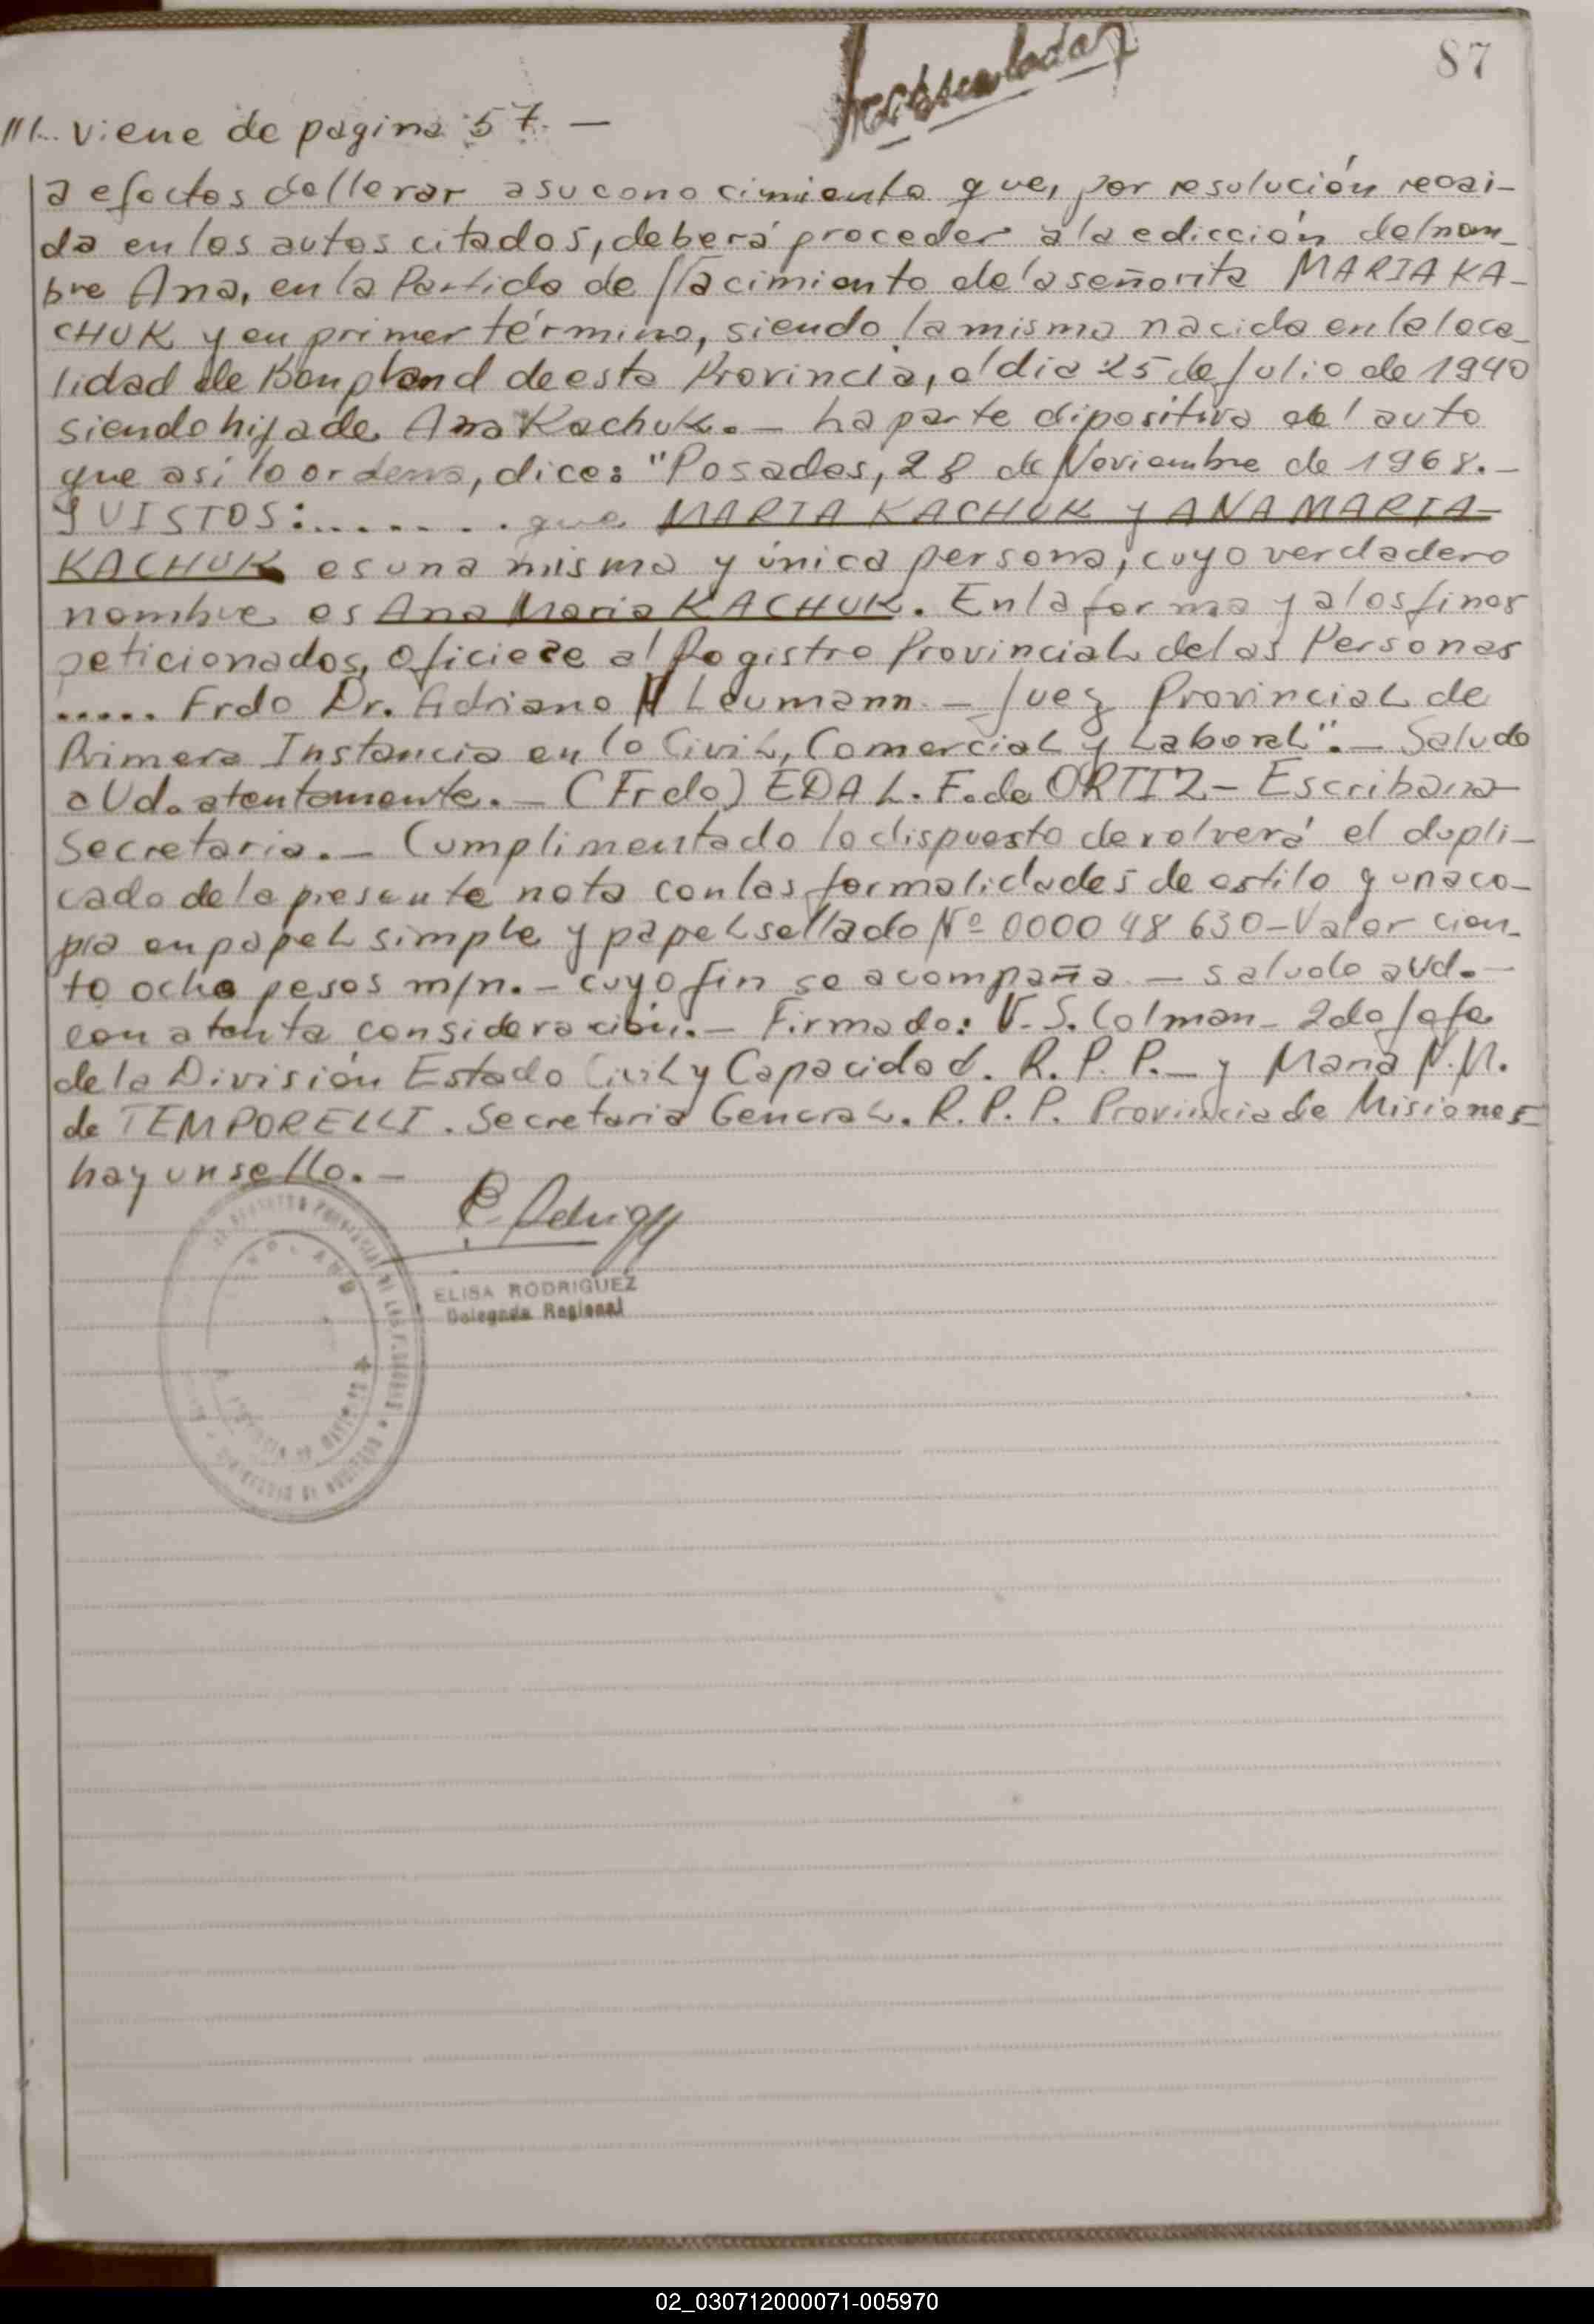 87
///.. viene de pagina 57. —
a efectos dellevar asuconocimiento que, por resolución recai-
da en los autos citados, deberá proceder a la edicción delnom-
bre Ana, en la Partida de Nacimiento de la señorita MARIA KA-
CHUK y en primer término, siendo la misma nacida en la loca-
lidad de Bonpland de esta Provincia, el dia 25 de Julio de 1940
siendo hija de Ana Kachuk. — La parte dipositiva del auto
que así lo ordena, dice: "Posadas, 28 de Noviembre de 1968. —
Y VISTOS:........ que MARIA KACHUK y ANA MARIA
KACHUK es una misma y única persona, cuyo verdadero
nombre es Ana Maria KACHUK. En la forma y a los fines
peticionados, oficiese al Registro Provincial de las Personas
..... Frdo Dr. Adriano N Leumann. — Juez Provincial de
Primera Instancia en lo Civil, Comercial y Laboral". — Saludo
a Ud. atentamente. — (Frdo) EDA L. F. de ORTIZ — Escribana
Secretaria. — Cumplimentado lo dispuesto devolverá el dupli-
cado de la presente nota con las formalidades de estilo y una co-
pia en papel simple y papel sellado Nº 0000 48 630 — Valor cien-
to ocho pesos m/n. — cuyo fin se acompaña. — saludo a Ud. —
con atenta consideración. — Firmado: V. S. Colman — 2do Jefe
de la División Estado Civil y Capacidad. R. P. P. — y Maria N. N.
de TEMPORELLI. Secretaria General. R. P. P. Provincia de Misiones
hay un sello. —
ELISA RODRIGUEZ
Delegada Regional
02_030712000071-005970